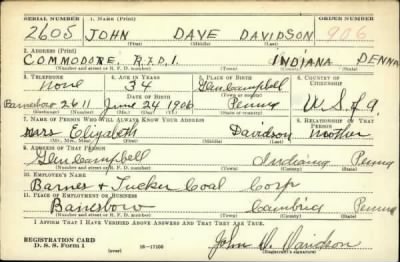 SERIAL NUMBER 1. NAME (Print) ORDER NUMBER
2605 JOHN DAVE DAVIDSON 906
(First) (Middle) (Last)
2. ADDRESS (Print)
COMMODORE, R.F.D.1. INDIANA PENNA
(Number and street or R. F. D. number) (Town) (County) (State)
3. TELEPHONE 4. AGE IN YEARS 5. PLACE OF BIRTH 6. COUNTRY OF CITIZENSHIP
None 34 Glen Campbell
DATE OF BIRTH (Town or county)
Barnesboro 2611 June 24 1906 Penna U.S. of A.
(Exchange) (Number) (Mo.) (Day) (Yr.) (State or country)
7. NAME OF PERSON WHO WILL ALWAYS KNOW YOUR ADDRESS 8. RELATIONSHIP OF THAT PERSON
Mrs Elizabeth Davidson Mother
(Mr., Mrs., Miss) (First) (Middle) (Last)
9. ADDRESS OF THAT PERSON
Glen Campbell Indiana Penna
(Number and street or R. F. D. number) (Town) (County) (State)
10. EMPLOYER'S NAME
Barnes + Tucker Coal Corp
11. PLACE OF EMPLOYMENT OR BUSINESS
Barnesboro Cambria Penna
(Number and street or R. F. D. number) (Town) (County) (State)
I AFFIRM THAT I HAVE VERIFIED ABOVE ANSWERS AND THAT THEY ARE TRUE.
REGISTRATION CARD
D. S. S. Form 1 (over) 16—17105 John D. Davidson
(Registrant's signature)